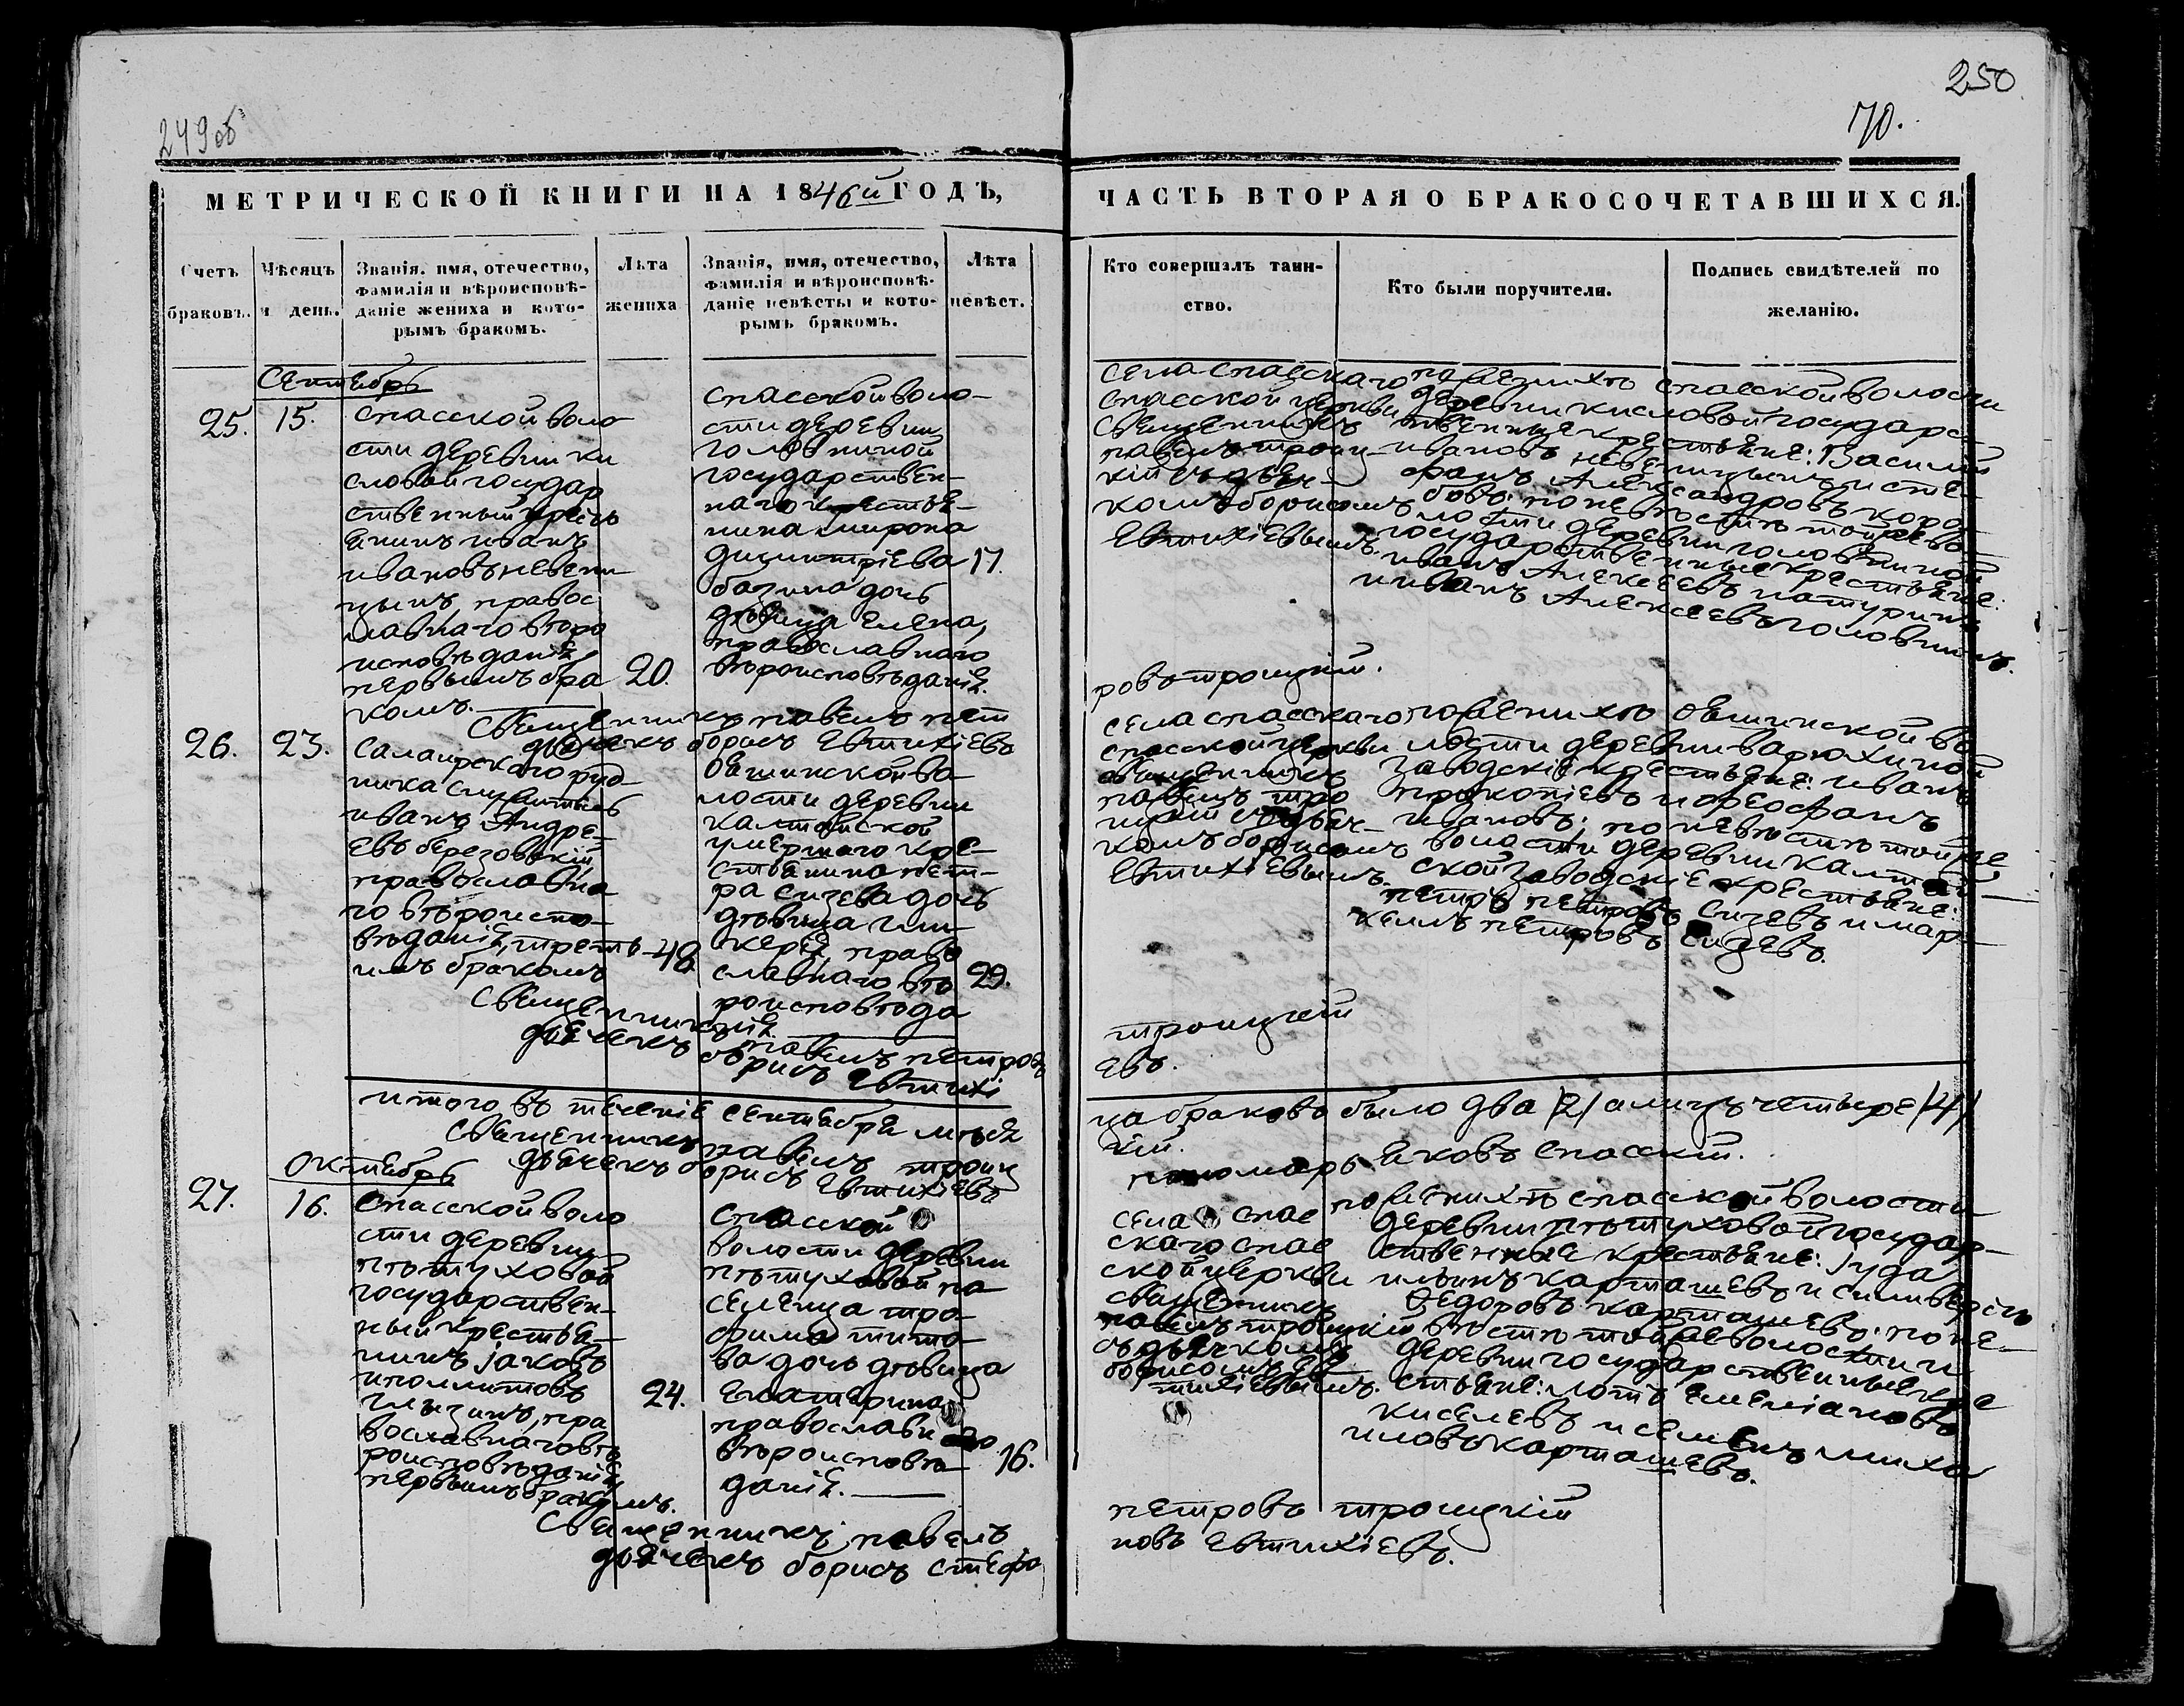 249об
250
70.
МЕТРИЧЕСКОЙ КНИГИ НА 1846й ГОДЪ,
ЧАСТЬ ВТОРАЯ О БРАКОСОЧЕТАВШИХСЯ.
Счетъ браковъ.
Мѣсяцъ и день.
Званія. имя, отечество,
фамилія и вѣроисповѣ-
даніе жениха и кото-
рымъ бракомъ.
Лѣта
жениха
Званія, имя, отечество,
фамилія и вѣроисповѣ-
даніе невѣсты и кото-
рымъ бракомъ.
Лѣта
невѣст.
Кто совершалъ таин-
ство.
Кто были поручители.
Подпись свидѣтелей по
желанію.
Сентябрь
25.
15.
Спасской воло
сти деревни ки
словой государ
ственный кресть
янинъ иванъ
ивановъ невени
цынъ, правос
лавнаго вѣро
исповѣданія
первымъ бра
комъ.
20.
Спасской воло-
сти деревни
головиной
государствен-
наго крестья-
нина мирона
димитріева
базина дочь
дѣвица Елена,
православнаго
вѣроисповѣданія.
17.
Села спасскаго
спасской церкви
священникъ
павелъ троиц-
кій съ дьяч-
комъ борисомъ
Евтихіевымъ.
по женихѣ спасской волости
деревни кисловой государс-
твенные крестьяне: Василій
ивановъ невеницынъ и сте-
фанъ Александровъ коро-
бовъ: по невѣстѣ той же во-
лости деревни головиной
государственные крестьяне:
иванъ Алексеевъ натуринъ
и иванъ Алексеевъ головинъ.
Священникъ павелъ пет
ровъ троицкій.
дьячекъ борисъ Евтихіевъ
26.
23.
Салаирскаго руд-
ника служитель
иванъ Андре-
евъ березовскій,
православна
го вѣроиспо-
вѣданія, треть-
имъ бракомъ
48
Ояшинской во
лости деревни
калтайской
умершаго кре-
стьянина пет-
ра сизева дочь
дѣвица гли-
керія, право
славнаго вѣ
роисповѣда
нія.
29.
Села спасскаго
спасской церкви
священникъ
павелъ тро
ицкій съ дьяч-
комъ борисомъ
Евтихіевымъ.
по женихѣ Ояшинской во
лости деревни варюхиной
заводскіе крестьяне: иванъ
прокопіевъ и феофанъ
ивановъ; по невѣстѣ той же
волости деревни калтай-
ской заводскіе крестьяне:
петръ петровъ сизевъ и мар-
келъ петровъ сизевъ.
Священникъ павелъ петровъ
троицкій
дьячекъ борисъ Евтихі
евъ.
итого въ теченіе сентября мѣся
ца браковъ было два /2/ а лицъ четыре /4/
Священникъ павелъ троиц
кій.
дьячекъ борисъ Евтихіевъ
пономарь яковъ спасскій.
Октябрь
27.
16.
Спасской воло
сти деревни
пѣтуховой
государствен-
ный крестья-
нинъ іаковъ
ипполитовъ
глызинъ, пра
вославнаго вѣ
роисповѣданія
первымъ бракомъ.
24.
Спасской
волости деревни
пѣтуховой по
селенца тро-
фима тито-
ва дочь дѣвица
Екатерина
православнаго
вѣроисповѣ
данія.
16.
Села спас
скаго спас
ской церкви
священникъ
павелъ троицкій
съ дьячкомъ
борисомъ Ев
тихіевымъ.
по женихѣ спасской волости
деревни пѣтуховой государ-
ственные крестьяне: іуда
ильинъ карташевъ и сильверстъ
Ѳедоровъ карташевъ: по не-
вѣстѣ той же волости и
деревни государственные кре
стьяне: лотъ емеліановъ
киселевъ и семенъ миха
иловъ карташевъ.
Священникъ павелъ
петровъ троицкій
дьячекъ борисъ стефа
новъ Евтихіевъ.